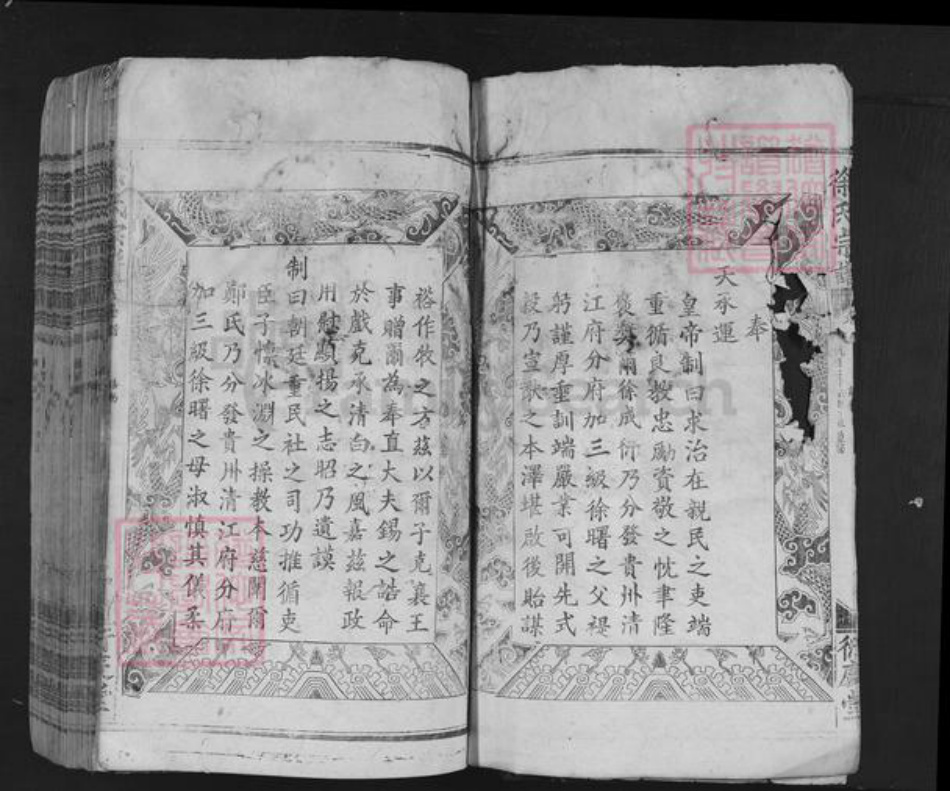 徐氏宗譜
奉
天承運
皇帝制曰求治在親民之吏端
重循良教忠勵資敬之忱聿隆
褒獎爾徐成衍乃分發貴州清
江府分府加三級徐曙之父禔
躬謹厚垂訓端嚴業可開先式
穀乃宣猷之本澤堪啟後貽謀
裕作牧之方茲以爾子克襄王
事贈爾為奉直大夫錫之誥命
於戲克承清白之風嘉茲報政
用慰顯揚之志昭乃遺謨
制曰朝廷重民社之司功推循吏
臣子懍冰淵之操教本慈闈爾
鄭氏乃分發貴州清江府分府
加三級徐曙之母淑慎其儀柔